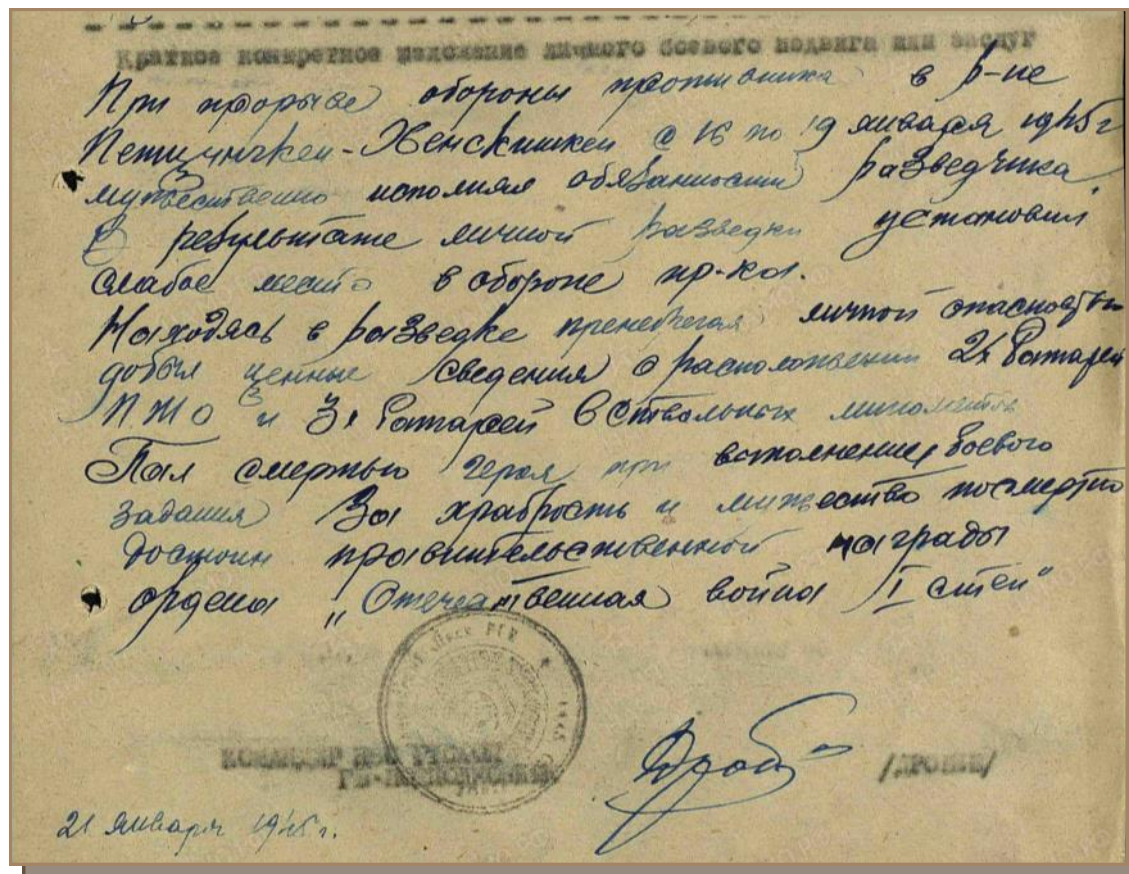 Краткое конкретное изложение личного боевого подвига или заслуг
При прорыве обороны противника в р-не
с 16 по 19 января 1945 г
мужественно исполнял обязанности разведчика.
В результате личной разведки установил
слабое место в обороне пр-ка.
Находясь в разведке пренебрегая личной опасностью
добыл ценные сведения о расположении 2х батарей
ПТО и 3х батарей 6 ствольных минометов
Пал смертью героя при выполнение боевого
задания За храбрость и мужество посмертно
достоин правительственной награды
ордена „Отечественная война I степ"
КОМАНДИР
ГВ-ПОДПОЛКОВНИК
21 января 1945 г.